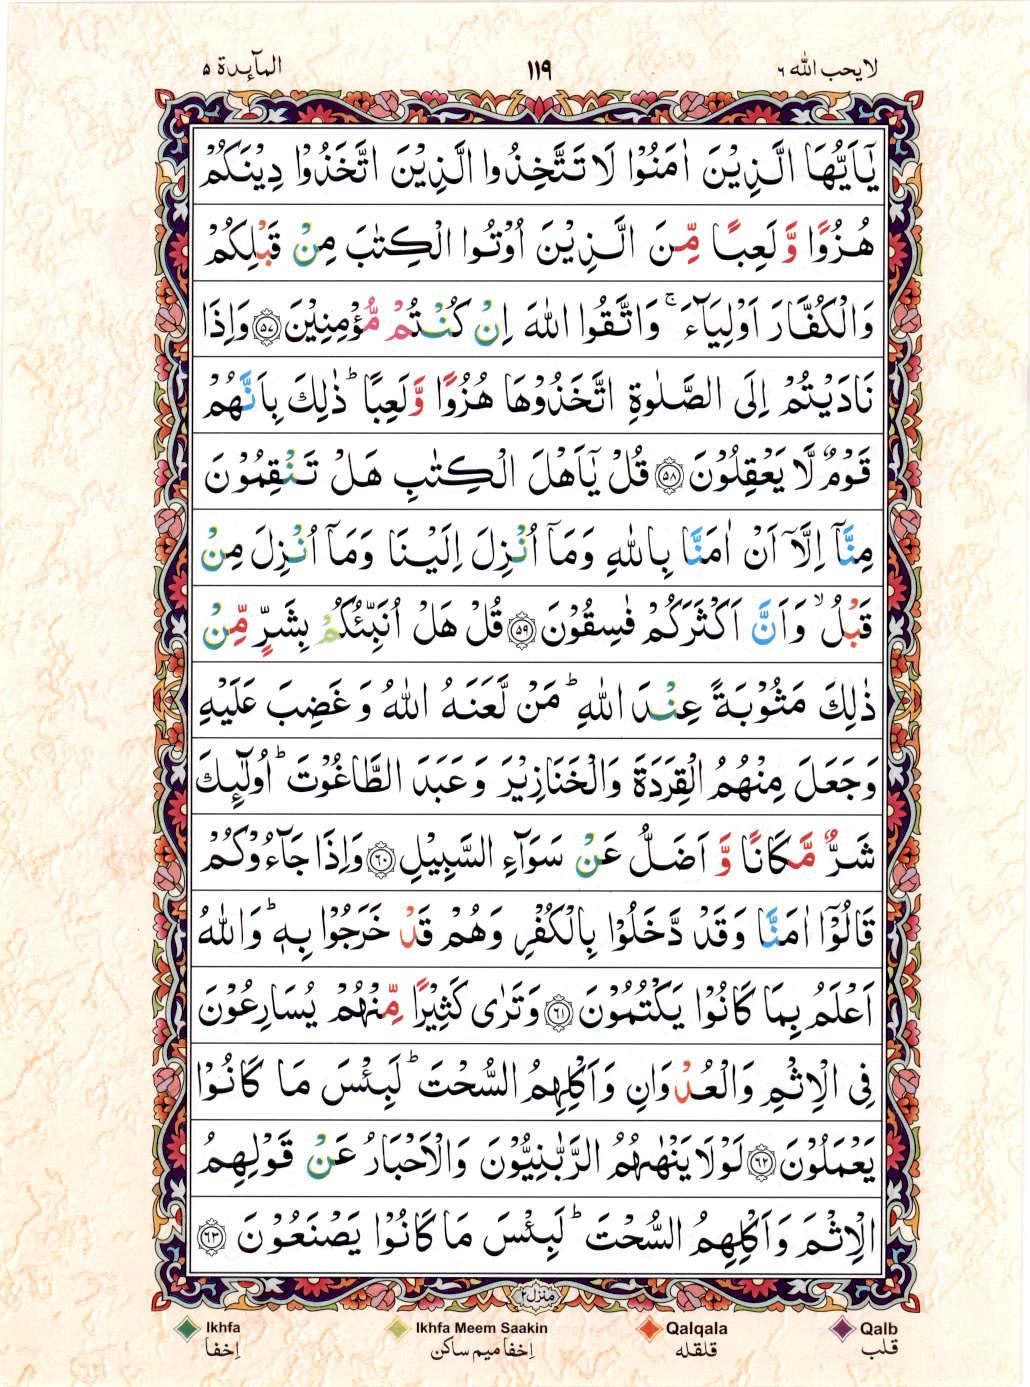 لایحب الله ٦ ١١٩ المآىِٕدة ٥
یٰۤاَیُّهَا الَّذِیْنَ اٰمَنُوْا لَا تَتَّخِذُوا الَّذِیْنَ اتَّخَذُوْا دِیْنَكُمْ
هُزُوًا وَّ لَعِبًا مِّنَ الَّذِیْنَ اُوْتُوا الْكِتٰبَ مِنْ قَبْلِكُمْ
وَالْكُفَّارَ اَوْلِیَآءَ ۚ وَاتَّقُوا اللّٰهَ اِنْ كُنْتُمْ مُّؤْمِنِیْنَ ﴿٥٧﴾ وَاِذَا
نَادَیْتُمْ اِلَی الصَّلٰوةِ اتَّخَذُوْهَا هُزُوًا وَّلَعِبًا ؕ ذٰلِكَ بِاَنَّهُمْ
قَوْمٌ لَّا یَعْقِلُوْنَ ﴿٥٨﴾ قُلْ یٰۤاَهْلَ الْكِتٰبِ هَلْ تَنْقِمُوْنَ
مِنَّاۤ اِلَّاۤ اَنْ اٰمَنَّا بِاللّٰهِ وَمَاۤ اُنْزِلَ اِلَیْنَا وَمَاۤ اُنْزِلَ مِنْ
قَبْلُ ۙ وَاَنَّ اَكْثَرَكُمْ فٰسِقُوْنَ ﴿٥٩﴾ قُلْ هَلْ اُنَبِّئُكُمْ بِشَرٍّ مِّنْ
ذٰلِكَ مَثُوْبَةً عِنْدَ اللّٰهِ ؕ مَنْ لَّعَنَهُ اللّٰهُ وَ غَضِبَ عَلَیْهِ
وَجَعَلَ مِنْهُمُ الْقِرَدَةَ وَالْخَنَازِیْرَ وَعَبَدَ الطَّاغُوْتَ ؕ اُولٰٓىِٕكَ
شَرٌّ مَّكَانًا وَّ اَضَلُّ عَنْ سَوَآءِ السَّبِیْلِ ﴿٦٠﴾ وَاِذَا جَآءُوْكُمْ
قَالُوْۤا اٰمَنَّا وَقَدْ دَّخَلُوْا بِالْكُفْرِ وَهُمْ قَدْ خَرَجُوْا بِهٖ ؕ وَاللّٰهُ
اَعْلَمُ بِمَا كَانُوْا یَكْتُمُوْنَ ﴿٦١﴾ وَتَرٰی كَثِیْرًا مِّنْهُمْ یُسَارِعُوْنَ
فِی الْاِثْمِ وَالْعُدْوَانِ وَاَكْلِهِمُ السُّحْتَ ؕ لَبِئْسَ مَا كَانُوْا
یَعْمَلُوْنَ ﴿٦٢﴾ لَوْلَا یَنْهٰىهُمُ الرَّبّٰنِیُّوْنَ وَالْاَحْبَارُ عَنْ قَوْلِهِمُ
الْاِثْمَ وَاَكْلِهِمُ السُّحْتَ ؕ لَبِئْسَ مَا كَانُوْا یَصْنَعُوْنَ ﴿٦٣﴾
منزل ٢
Ikhfa Ikhfa Meem Saakin Qalqala Qalb
اِخفا اِخفا میم ساکن قلقله قلب